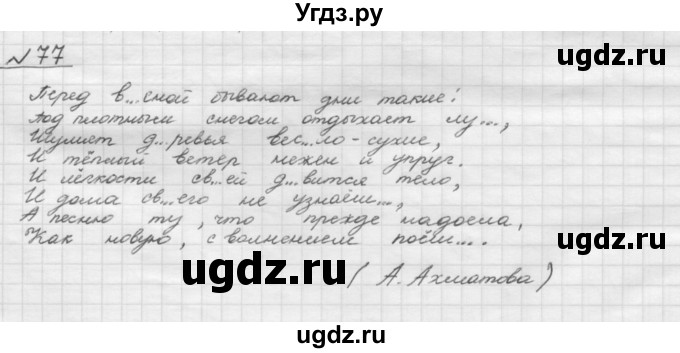 Угдз.ру
№77
Перед в...сной бывают дни такие:
Под плотным снегом отдыхает лу...,
Шумят д...ревья вес...ло-сухие,
И тёплый ветер нежен и упруг.
И лёгкости св...ей д...вится тело,
И дома св...его не узнаёш...,
А песню ту, что прежде надоела,
Как новую, с волнением поёш....
(А. Ахматова)
©ugdz.ru ugdz.ru ©ugdz.ru
ugdz.ru ©ugdz.ru
ugdz.ru
©ugdz.ru
ugdz.ru